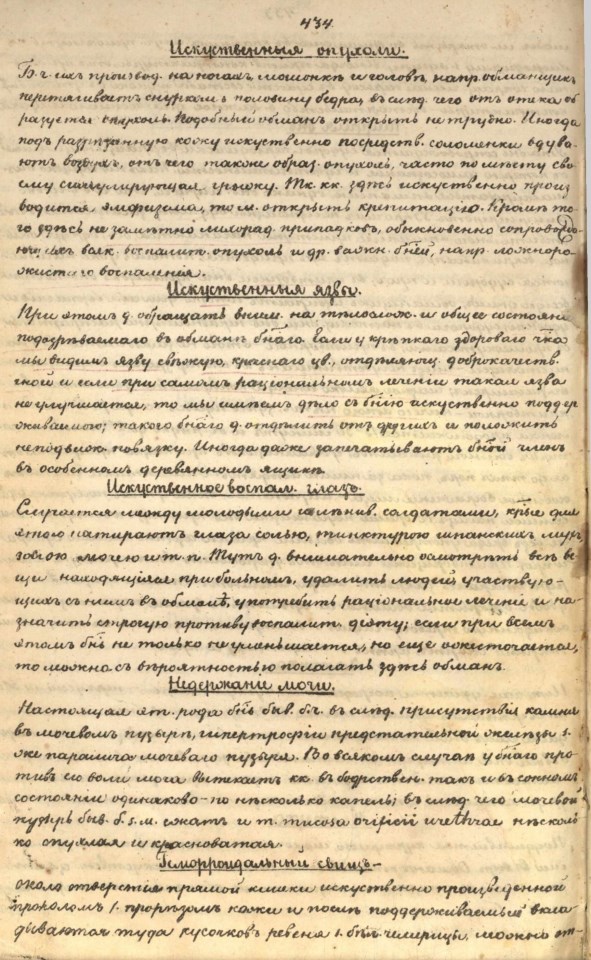 434.
Искуственныя опухоли.
Б. ч. ихъ производ. на ногахъ, мошонкѣ и головѣ, напр. обманщикъ
перетягиваетъ снуркомъ половину бедра, въ слѣд. чего отъ отека об
разуется опухоль. Подобный обманъ открыть не трудно. Иногда
подъ разрѣзанную кожу искуственно посредств. соломенки вдува-
ютъ воздухъ, отъ чего также образ. опухоль, часто по мѣсту сво
ему симулирующая грыжу. Тк. кк. здѣсь искуственно произ
водится эмфизема, то м. открыть крипитацію. Кромѣ то-
го здѣсь не замѣтно лихорад. припадковъ, обыкновенно сопровожда
ющихъ всяк. воспалит. опухоль и др. важн. бнѣй, напр. ложноро-
жистаго воспаленія.
Искуственныя язвы.
При этомъ д. обращать вним. на тѣлолож. и общее состояніе
подозрѣваемаго въ обманѣ бнаго. Если у крѣпкаго здороваго чка
мы видимъ язву свѣжую, краснаго цв., отдѣляющ. доброкачеств.
гной и если при самомъ раціональномъ леченіи такая язва
не улучшается, то мы имѣемъ дѣло съ бнію искуственно поддер
живаемою; такого бнаго д. отдѣлить отъ другихъ и положить
неподвиж. повязку. Иногда даже запечатываютъ бной членъ
въ особенномъ деревянномъ ящикѣ.
Искуственное воспал. глазъ.
Случается между молодыми и лѣнив. солдатами, крые для
этого натираютъ глаза солью, тинктурою шпанскихъ мухъ,
мочею и т. п. Тутъ д. внимательно осмотрѣть всѣ ве
щи находящіяся при больномъ, удалить людей, участвую-
щихъ съ нимъ въ обманѣ, употребить раціональное леченіе и на-
значить строгую противувоспалит. діэту; если при всемъ
этомъ бнь не только не уменьшается, но еще ожесточается,
то можно съ вѣроятностью полагать здѣсь обманъ.
Недержаніе мочи.
Настоящая эт. рода бнь быв. б. ч. въ слѣд. присутствія камня
въ мочевомъ пузырѣ, гипертрофіи предстательной железы s.
же паралича мочеваго пузыря. Во всякомъ случаѣ у бнаго про-
тивъ его воли моча вытекаетъ кк. въ бодрствен. такъ и въ сонномъ
состояніи одинаково - по нѣсколько капель; въ слѣд. чего мочевой
пузырь быв. б. s. м. сжатъ и m. mucosa orificii urethrae нѣсколь
ко опухлая и красноватая.
Геморроидальный свищъ -
около отверстія прямой кишки искуственно произведенной
проколомъ s. прорѣзомъ кожи и послѣ поддерживаемый вкла
дываютъ туда кусочковъ ревеня s. бѣл. чемерицы, можно от-